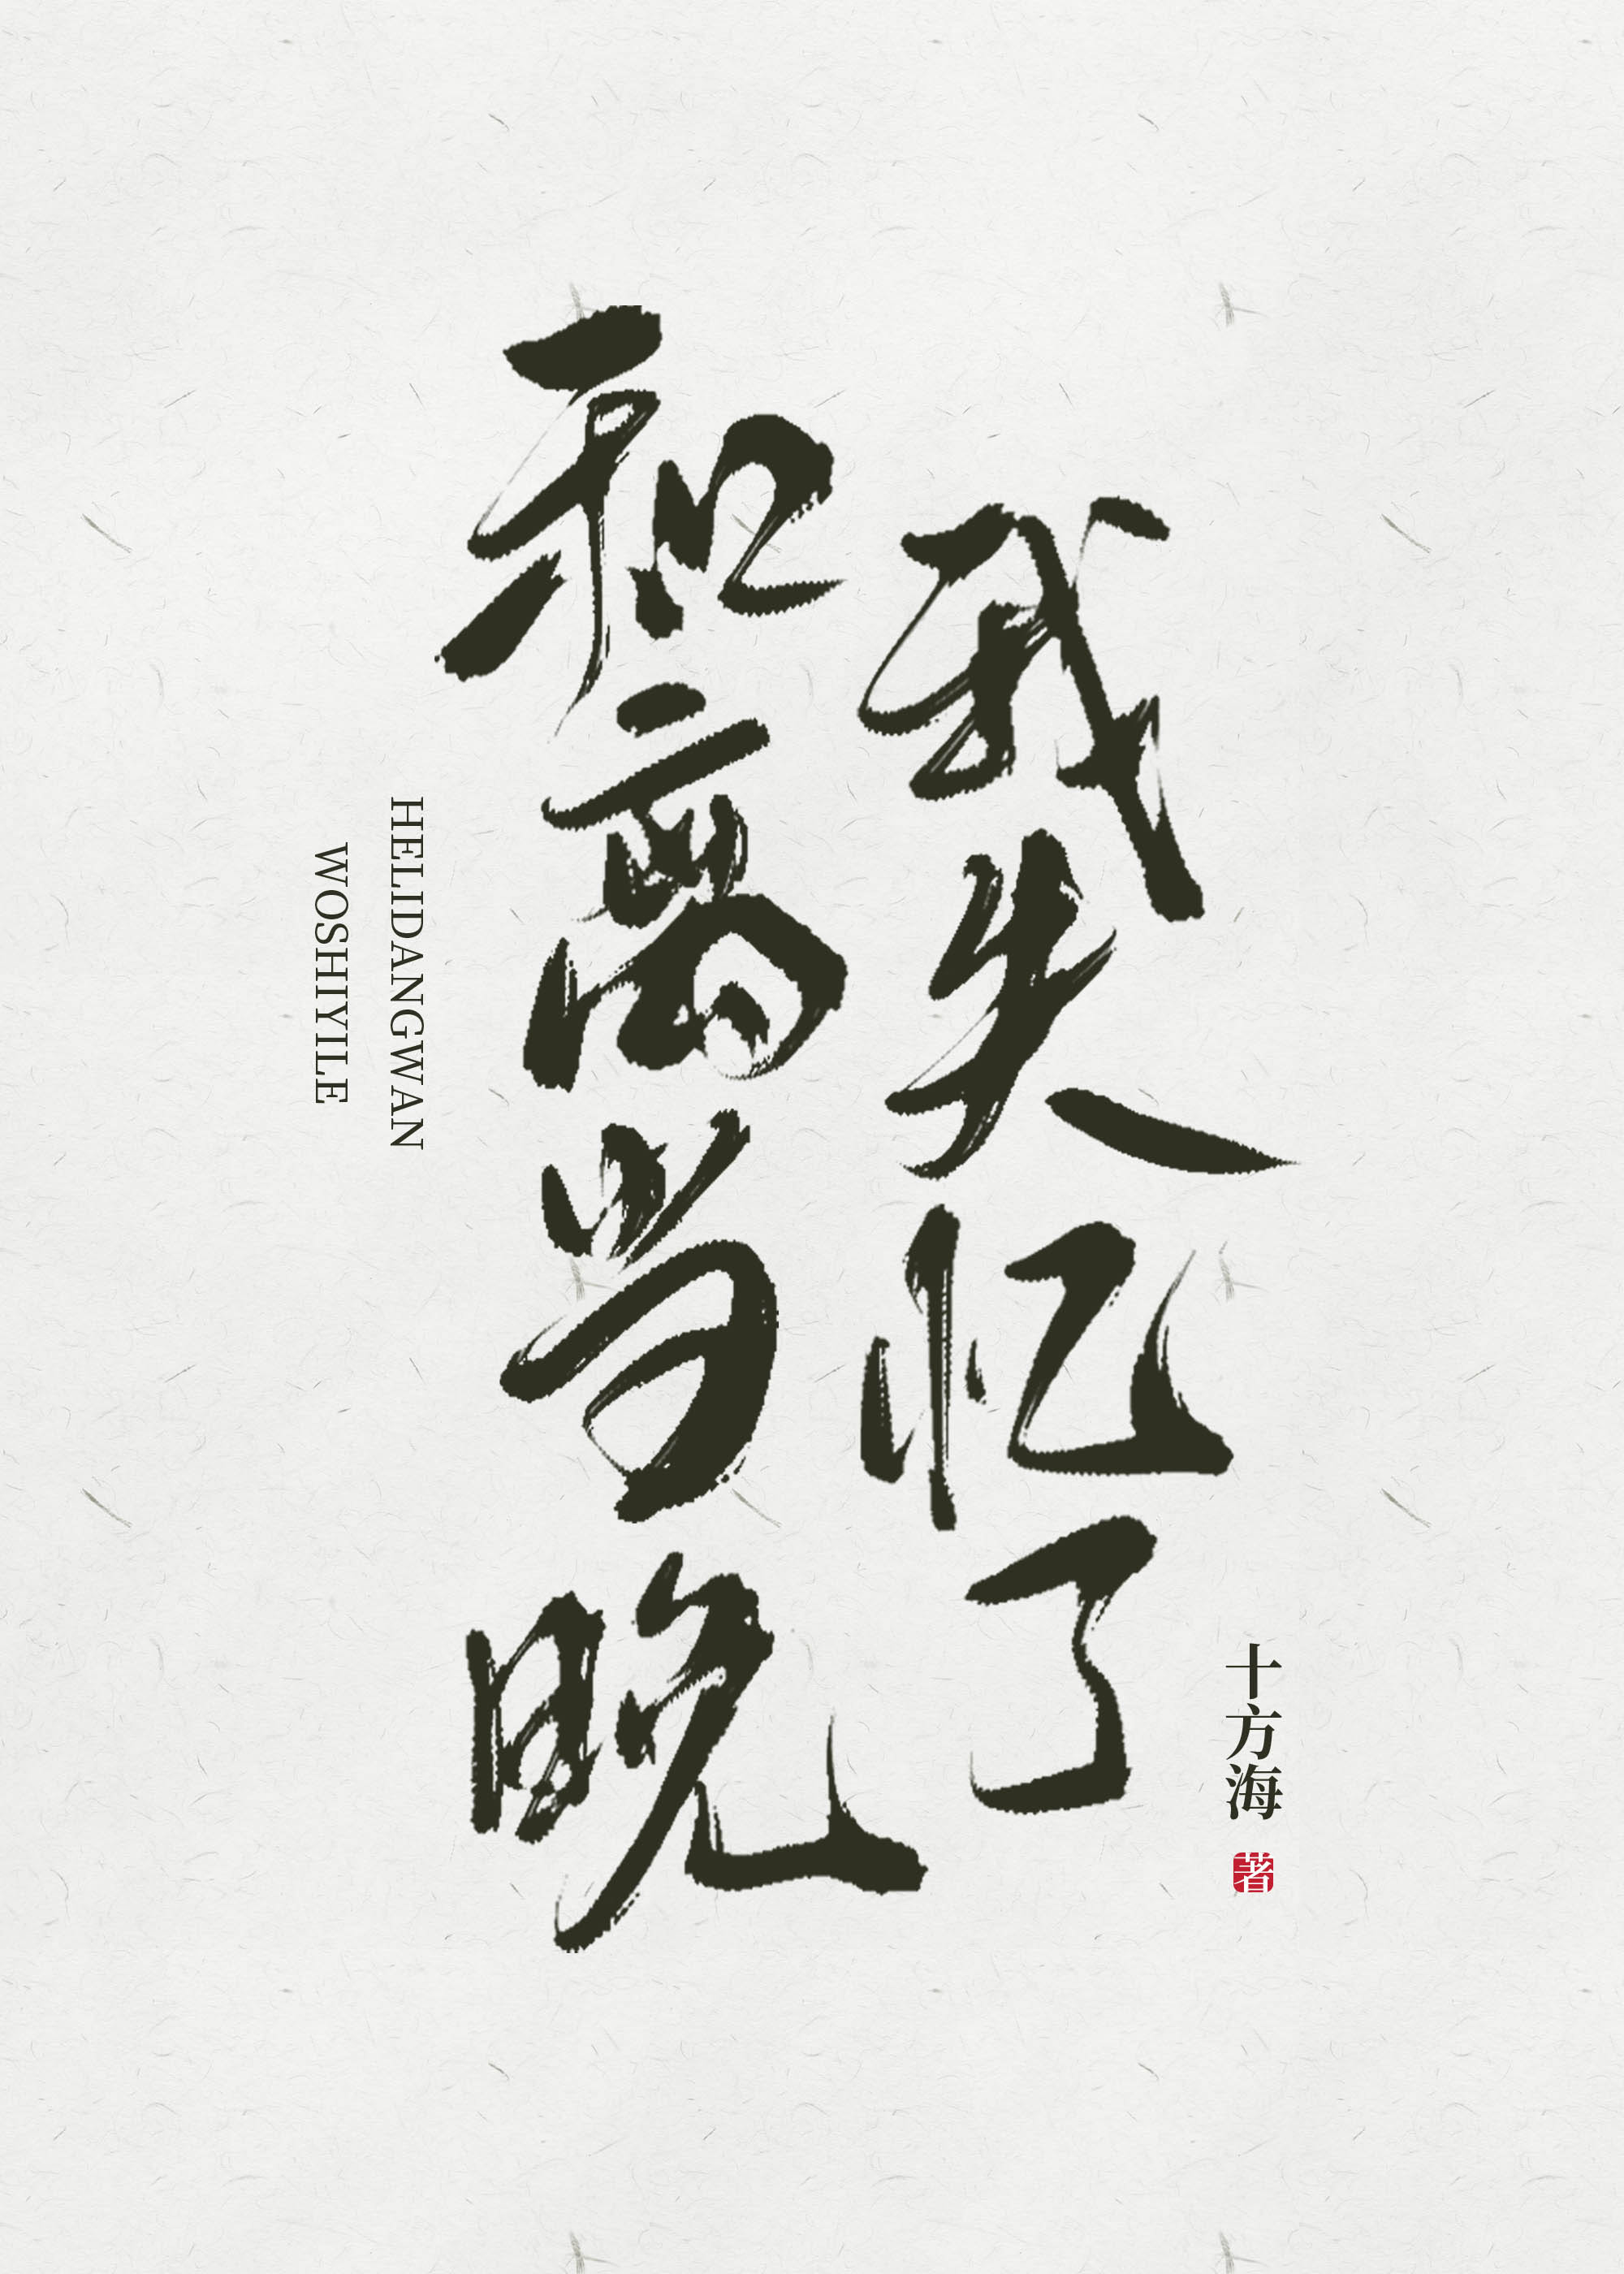 和离当晚
我失忆了
HELIDANGWAN
WOSHIYILE
十方海
著